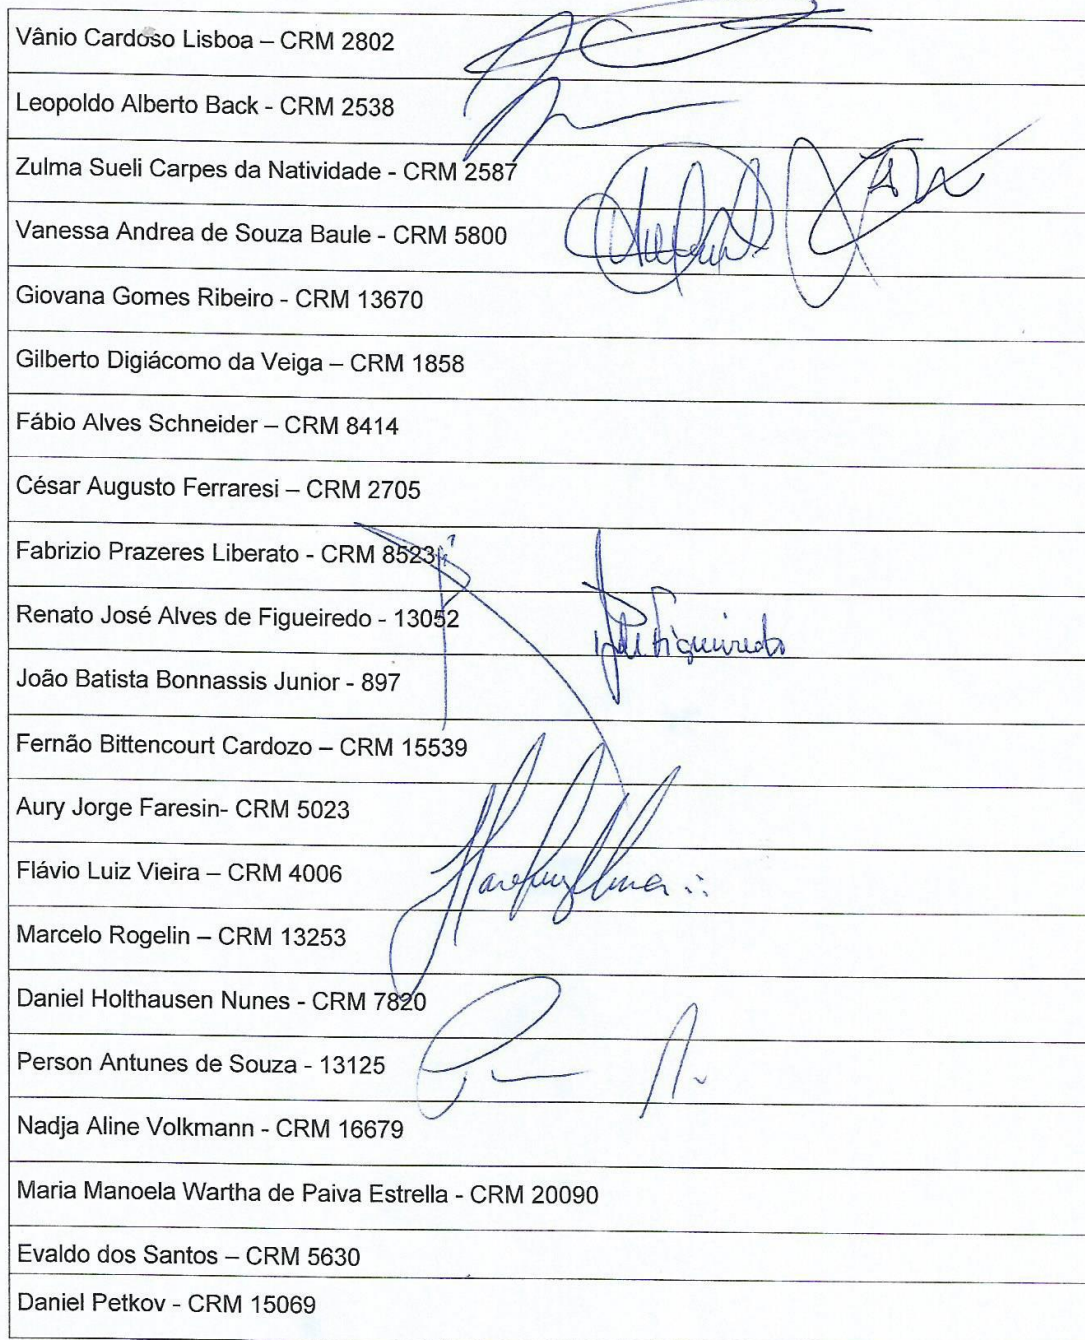 Vânio Cardoso Lisboa – CRM 2802
Leopoldo Alberto Back - CRM 2538
Zulma Sueli Carpes da Natividade - CRM 2587
Vanessa Andrea de Souza Baule - CRM 5800
Giovana Gomes Ribeiro - CRM 13670
Gilberto Digiácomo da Veiga – CRM 1858
Fábio Alves Schneider – CRM 8414
César Augusto Ferraresi – CRM 2705
Fabrizio Prazeres Liberato - CRM 8523
Renato José Alves de Figueiredo - 13052
Figueiredo
João Batista Bonnassis Junior - 897
Fernão Bittencourt Cardozo – CRM 15539
Aury Jorge Faresin- CRM 5023
Flávio Luiz Vieira – CRM 4006
Marcelo Rogelin – CRM 13253
Daniel Holthausen Nunes - CRM 7820
Person Antunes de Souza - 13125
Nadja Aline Volkmann - CRM 16679
Maria Manoela Wartha de Paiva Estrella - CRM 20090
Evaldo dos Santos – CRM 5630
Daniel Petkov - CRM 15069